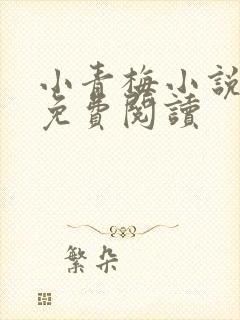 小青梅小說
免費閱讀
繁朵